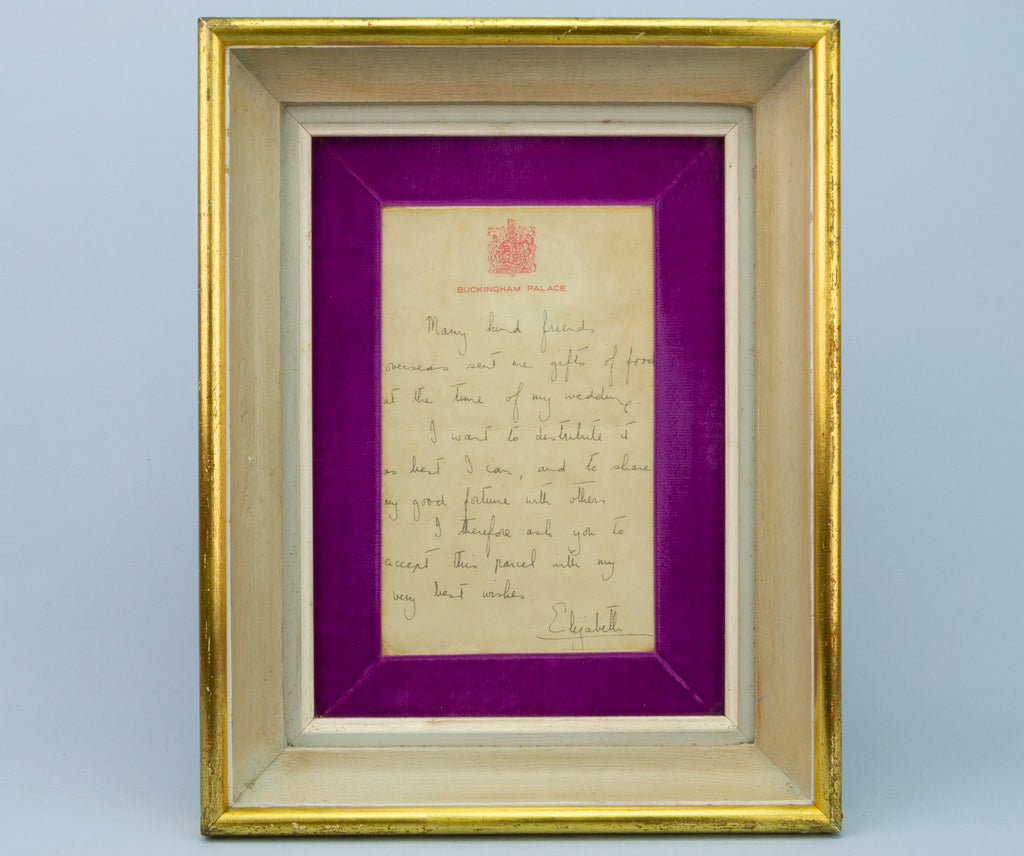 BUCKINGHAM PALACE
Many kind friends
overseas sent me gifts of food
at the time of my wedding.
I want to distribute it
as best I can, and to share
my good fortune with others
I therefore ask you to
accept this parcel with my
very best wishes.
Elizabeth